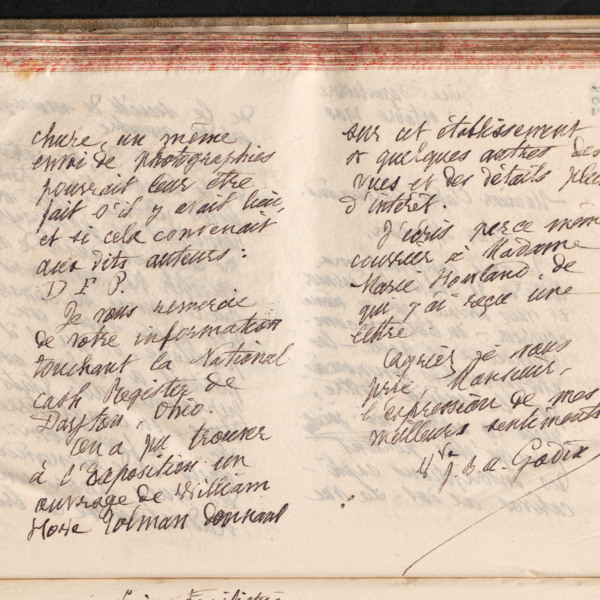 chure, un même
envoi de photographies
pourrait leur être
fait s'il y avait lieu,
et si cela convenait
aux dits auteurs :
D F P.
Je vous remercie
de votre information
touchant la National
cash Register de
Dayton, Ohio.
On a pu trouver
à l'Exposition un
ouvrage de William
Howe Tolman donnant
sur cet établissement
et quelques autres des
vues et des détails pleins
d'intérêt.
J'écris par ce même
courrier à Madame
Marie Howland, de
qui j'ai reçu une
lettre.
Agréez, je vous
prie, Monsieur,
l'expression de mes
meilleurs sentiments
Vve J B. A. Godin